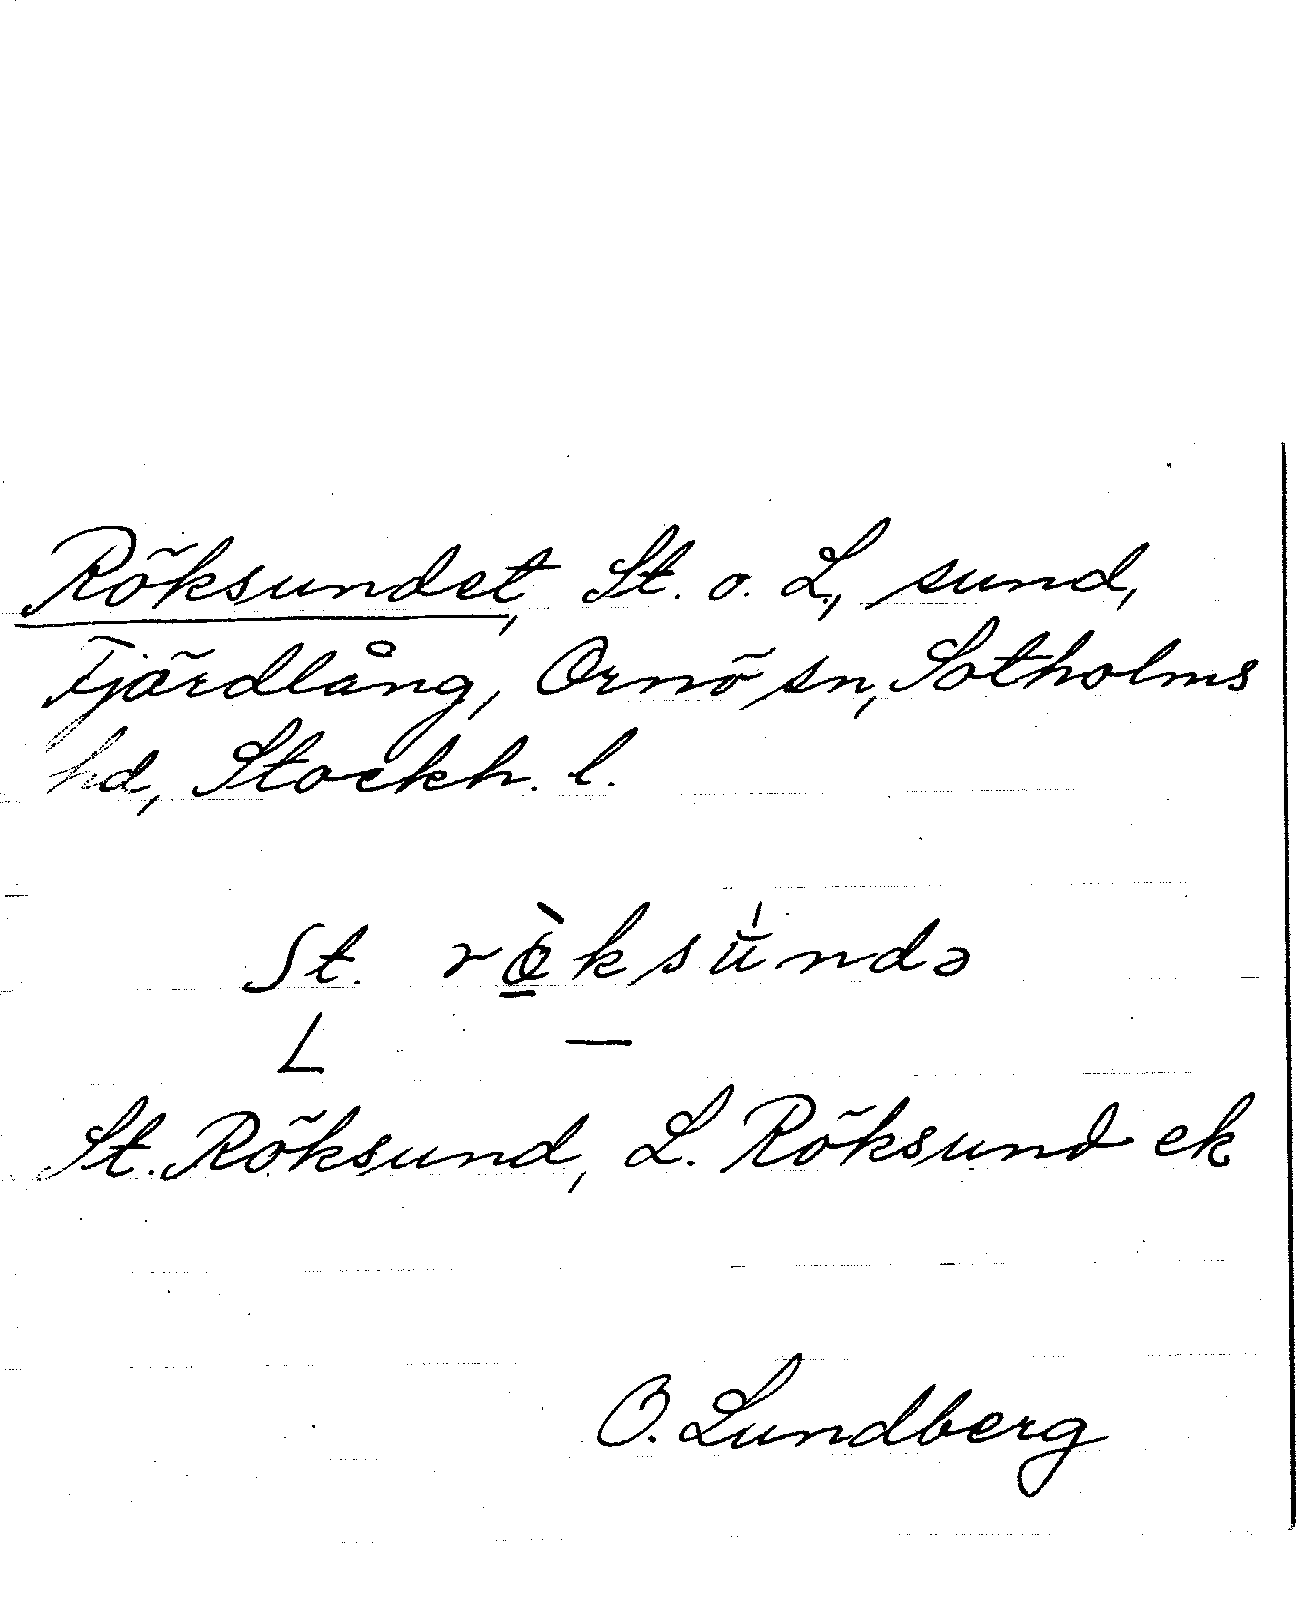 Röksundet, St. o. L., sund,
Fjärdlång, Ornö sn, Sotholms
hd, Stockh. l.
St. rö̀ksu̍ndə
L —
St. Röksund, L. Röksund ek
O. Lundberg